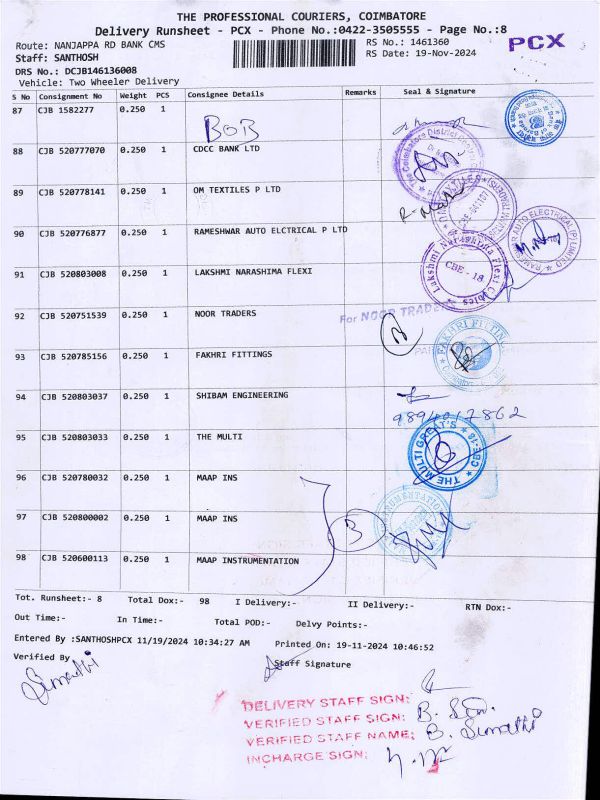 THE PROFESSIONAL COURIERS, COIMBATORE
Delivery Runsheet - PCX - Phone No.:0422-3505555 - Page No.:8
Route: NANJAPPA RD BANK CMS RS No.: 1461360 PCX
Staff: SANTHOSH RS Date: 19-Nov-2024
DRS No.: DCJB146136008
Vehicle: Two Wheeler Delivery
S No Consignment No Weight PCS Consignee Details Remarks Seal & Signature
87 CJB 1582277 0.250 1
BOB
88 CJB 520777070 0.250 1 CDCC BANK LTD
89 CJB 520778141 0.250 1 OM TEXTILES P LTD
90 CJB 520776877 0.250 1 RAMESHWAR AUTO ELCTRICAL P LTD
91 CJB 520803008 0.250 1 LAKSHMI NARASHIMA FLEXI
CBE - 18
92 CJB 520751539 0.250 1 NOOR TRADERS
For NOOR TRADERS
93 CJB 520785156 0.250 1 FAKHRI FITTINGS
FAKHRI FITTINGS
94 CJB 520803037 0.250 1 SHIBAM ENGINEERING
9894017862
95 CJB 520803033 0.250 1 THE MULTI
THE MULTI GREAT'S CBE-18
96 CJB 520780032 0.250 1 MAAP INS
97 CJB 520800002 0.250 1 MAAP INS
3
98 CJB 520600113 0.250 1 MAAP INSTRUMENTATION
Tot. Runsheet:- 8 Total Dox:- 98 I Delivery:- II Delivery:- RTN Dox:-
Out Time:- In Time:- Total POD:- Delvy Points:-
Entered By :SANTHOSHPCX 11/19/2024 10:34:27 AM Printed On: 19-11-2024 10:46:52
Verified By Staff Signature
Sumathi
DELIVERY STAFF SIGN:
VERIFIED STAFF SIGN:
VERIFIED STAFF NAME: B. Sumathi
INCHARGE SIGN: